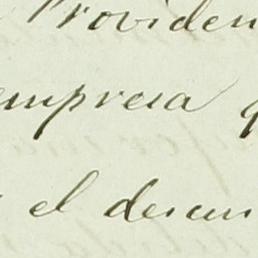 Providen
empresa q
el descu